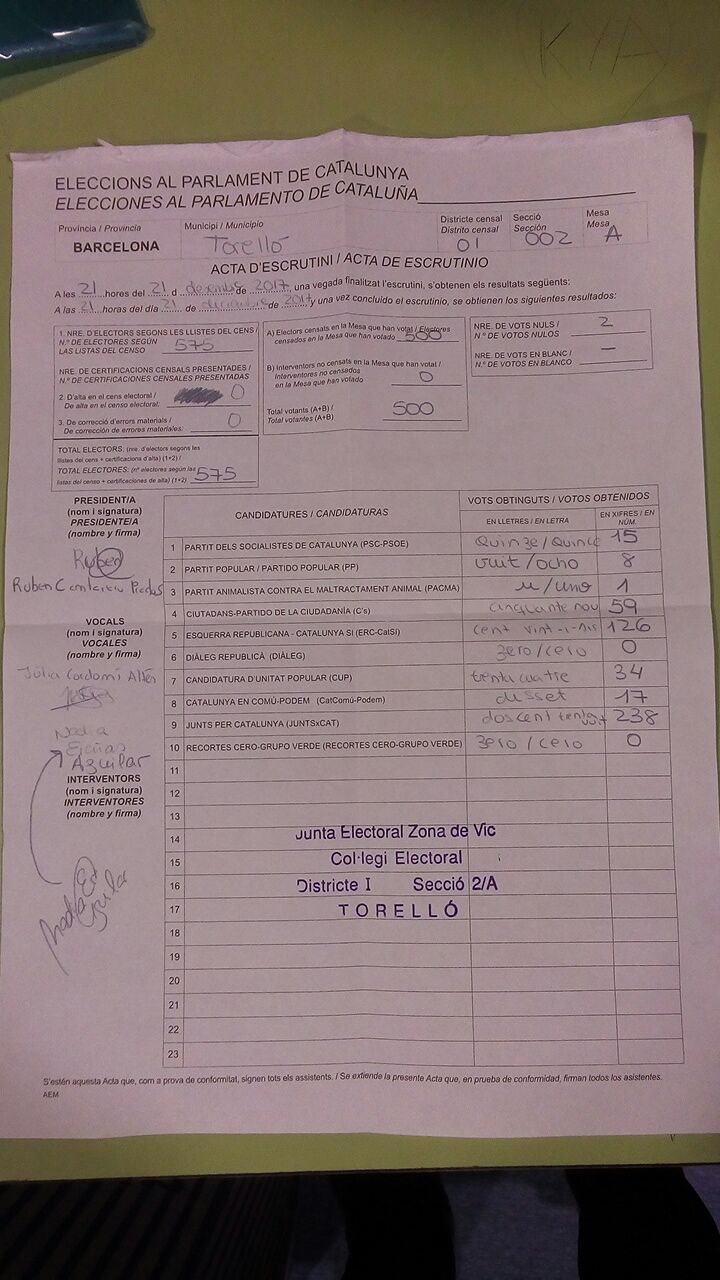 ELECCIONS AL PARLAMENT DE CATALUNYA
ELECCIONES AL PARLAMENTO DE CATALUÑA
Província / Provincia
BARCELONA
Municipi / Municipio
Torelló
Districte censal
Distrito censal
01
Secció
Sección
002
Mesa
Mesa
A
ACTA D'ESCRUTINI / ACTA DE ESCRUTINIO
A les 21 hores del 21 d desembre de 2017, una vegada finalitzat l'escrutini, s'obtenen els resultats següents:
A las 21 horas del día 21 de diciembre de 2017, y una vez concluido el escrutinio, se obtienen los siguientes resultados:
1. NRE. D'ELECTORS SEGONS LES LLISTES DEL CENS /
N.º DE ELECTORES SEGÚN
LAS LISTAS DEL CENSO 575
NRE. DE CERTIFICACIONS CENSALS PRESENTADES /
N.º DE CERTIFICACIONES CENSALES PRESENTADAS
2. D'alta en el cens electoral /
De alta en el censo electoral: 0
3. De correcció d'errors materials /
De corrección de errores materiales: 0
TOTAL ELECTORS: (nre. d'electors segons les
llistes del cens + certificacions d'alta) (1+2) /
TOTAL ELECTORES: (nº electores según las
listas del censo + certificaciones de alta) (1+2) 575
A) Electors censats en la Mesa que han votat / Electores
censados en la Mesa que han votado 500
B) Interventors no censats en la Mesa que han votat /
Interventores no censados
en la Mesa que han votado 0
Total votants (A+B) /
Total votantes (A+B) 500
NRE. DE VOTS NULS /
N.º DE VOTOS NULOS 2
NRE. DE VOTS EN BLANC /
N.º DE VOTOS EN BLANCO —
PRESIDENT/A
(nom i signatura)
PRESIDENTE/A
(nombre y firma)
Ruben
VOCALS
(nom i signatura)
VOCALES
(nombre y firma)
Júlia
Nadia
Aguilar
INTERVENTORS
(nom i signatura)
INTERVENTORES
(nombre y firma)
CANDIDATURES / CANDIDATURAS
VOTS OBTINGUTS / VOTOS OBTENIDOS
EN LLETRES / EN LETRA
EN XIFRES / EN NÚM.
1 PARTIT DELS SOCIALISTES DE CATALUNYA (PSC-PSOE) Quinze / Quince 15
2 PARTIT POPULAR / PARTIDO POPULAR (PP) vuit / ocho 8
3 PARTIT ANIMALISTA CONTRA EL MALTRACTAMENT ANIMAL (PACMA) u / uno 1
4 CIUTADANS-PARTIDO DE LA CIUDADANÍA (C's) cinquanta nou 59
5 ESQUERRA REPUBLICANA - CATALUNYA SÍ (ERC-CatSí) cent vint-i-sis 126
6 DIÀLEG REPUBLICÀ (DIÀLEG) zero / cero 0
7 CANDIDATURA D'UNITAT POPULAR (CUP) trenta cuatre 34
8 CATALUNYA EN COMÚ-PODEM (CatComú-Podem) disset 17
9 JUNTS PER CATALUNYA (JUNTSxCAT) doscent trenta vuit 238
10 RECORTES CERO-GRUPO VERDE (RECORTES CERO-GRUPO VERDE) zero / cero 0
11
12
13
14
15
16
17
18
19
20
21
22
23
Junta Electoral Zona de Vic
Col·legi Electoral
Districte I Secció 2/A
TORELLÓ
S'estén aquesta Acta que, com a prova de conformitat, signen tots els assistents. / Se extiende la presente Acta que, en prueba de conformidad, firman todos los asistentes.
AEM